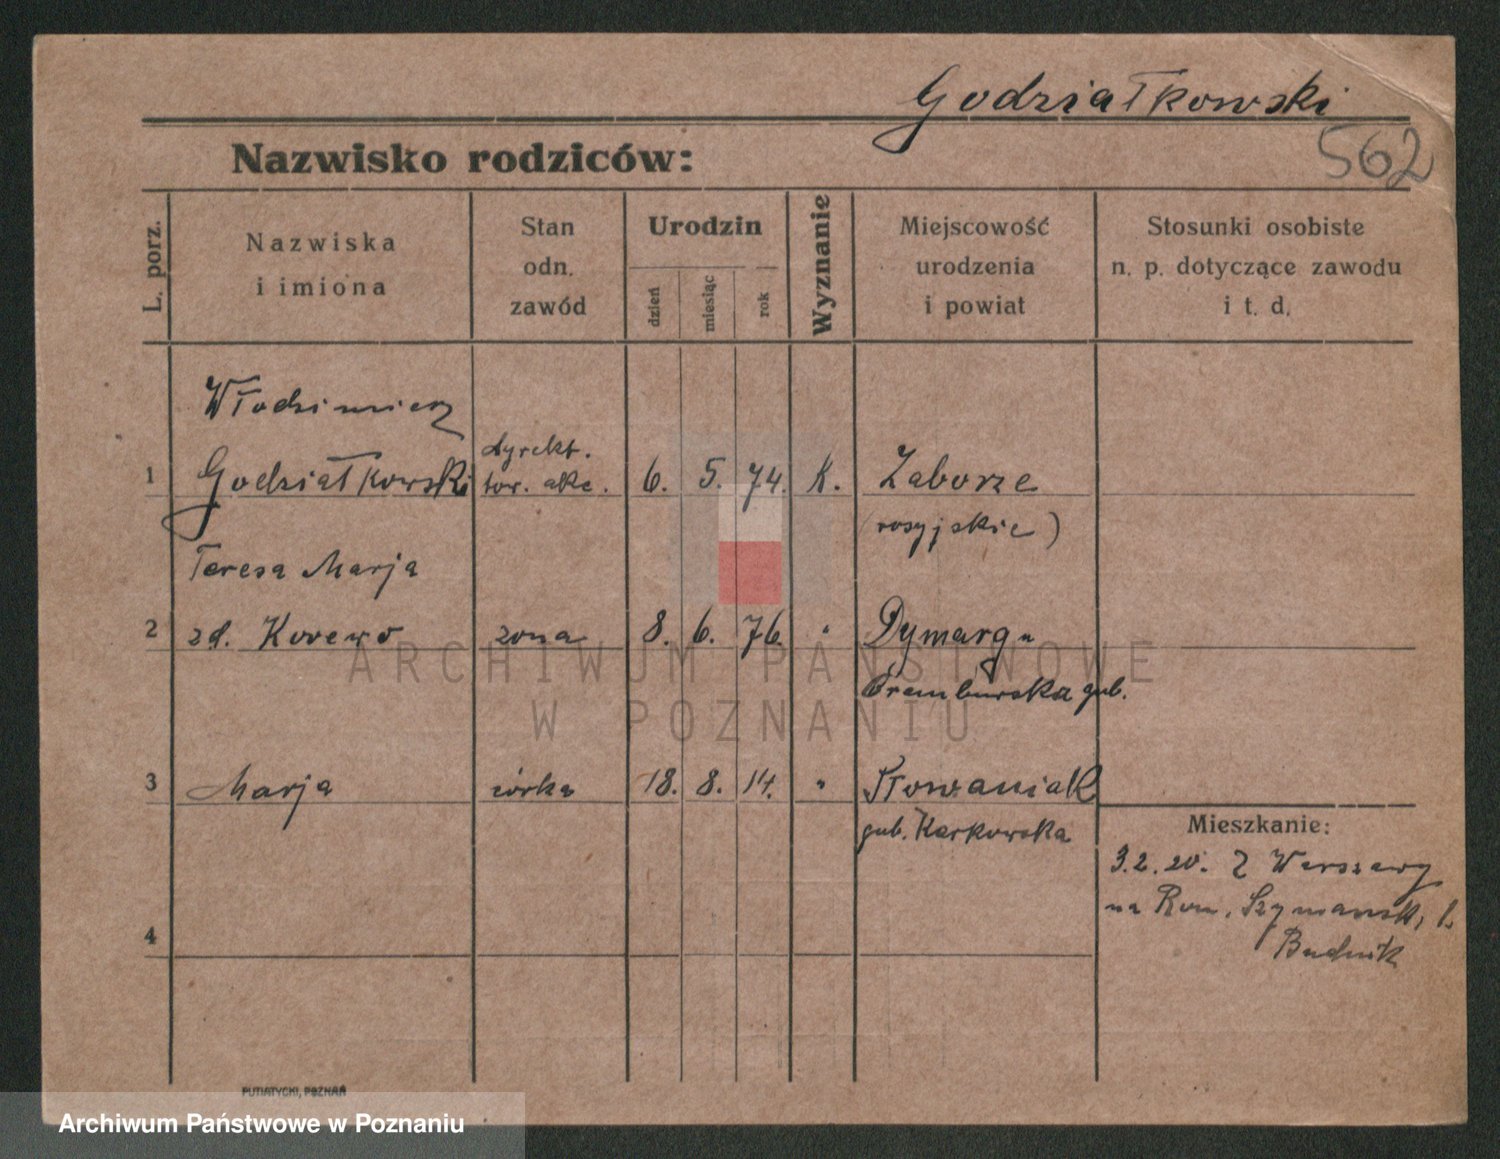 Godziałkowski
562
Nazwisko rodziców:
L. porz.
Nazwiska
i imiona
Stan
odn.
zawód
Urodzin
dzień
miesiąc
rok
Wyznanie
Miejscowość
urodzenia
i powiat
Stosunki osobiste
n. p. dotyczące zawodu
i t. d.
Włodzimierz
1 Godziałkowski dyrekt. tow. akc. 6. 5. 74. K. Zaborze
(rosyjskie)
Teresa Marja
2 zd. żona 8. 6. 76. "
gub.
3 Marja córka 18. 8. 14. "
gub. Karkowska
Mieszkanie:
3.2.20. Z Warszawy
na Rom. Szymansk,
4
PUTIATYCKI, POZNAŃ
ARCHIWUM PAŃSTWOWE
W POZNANIU
Archiwum Państwowe w Poznaniu